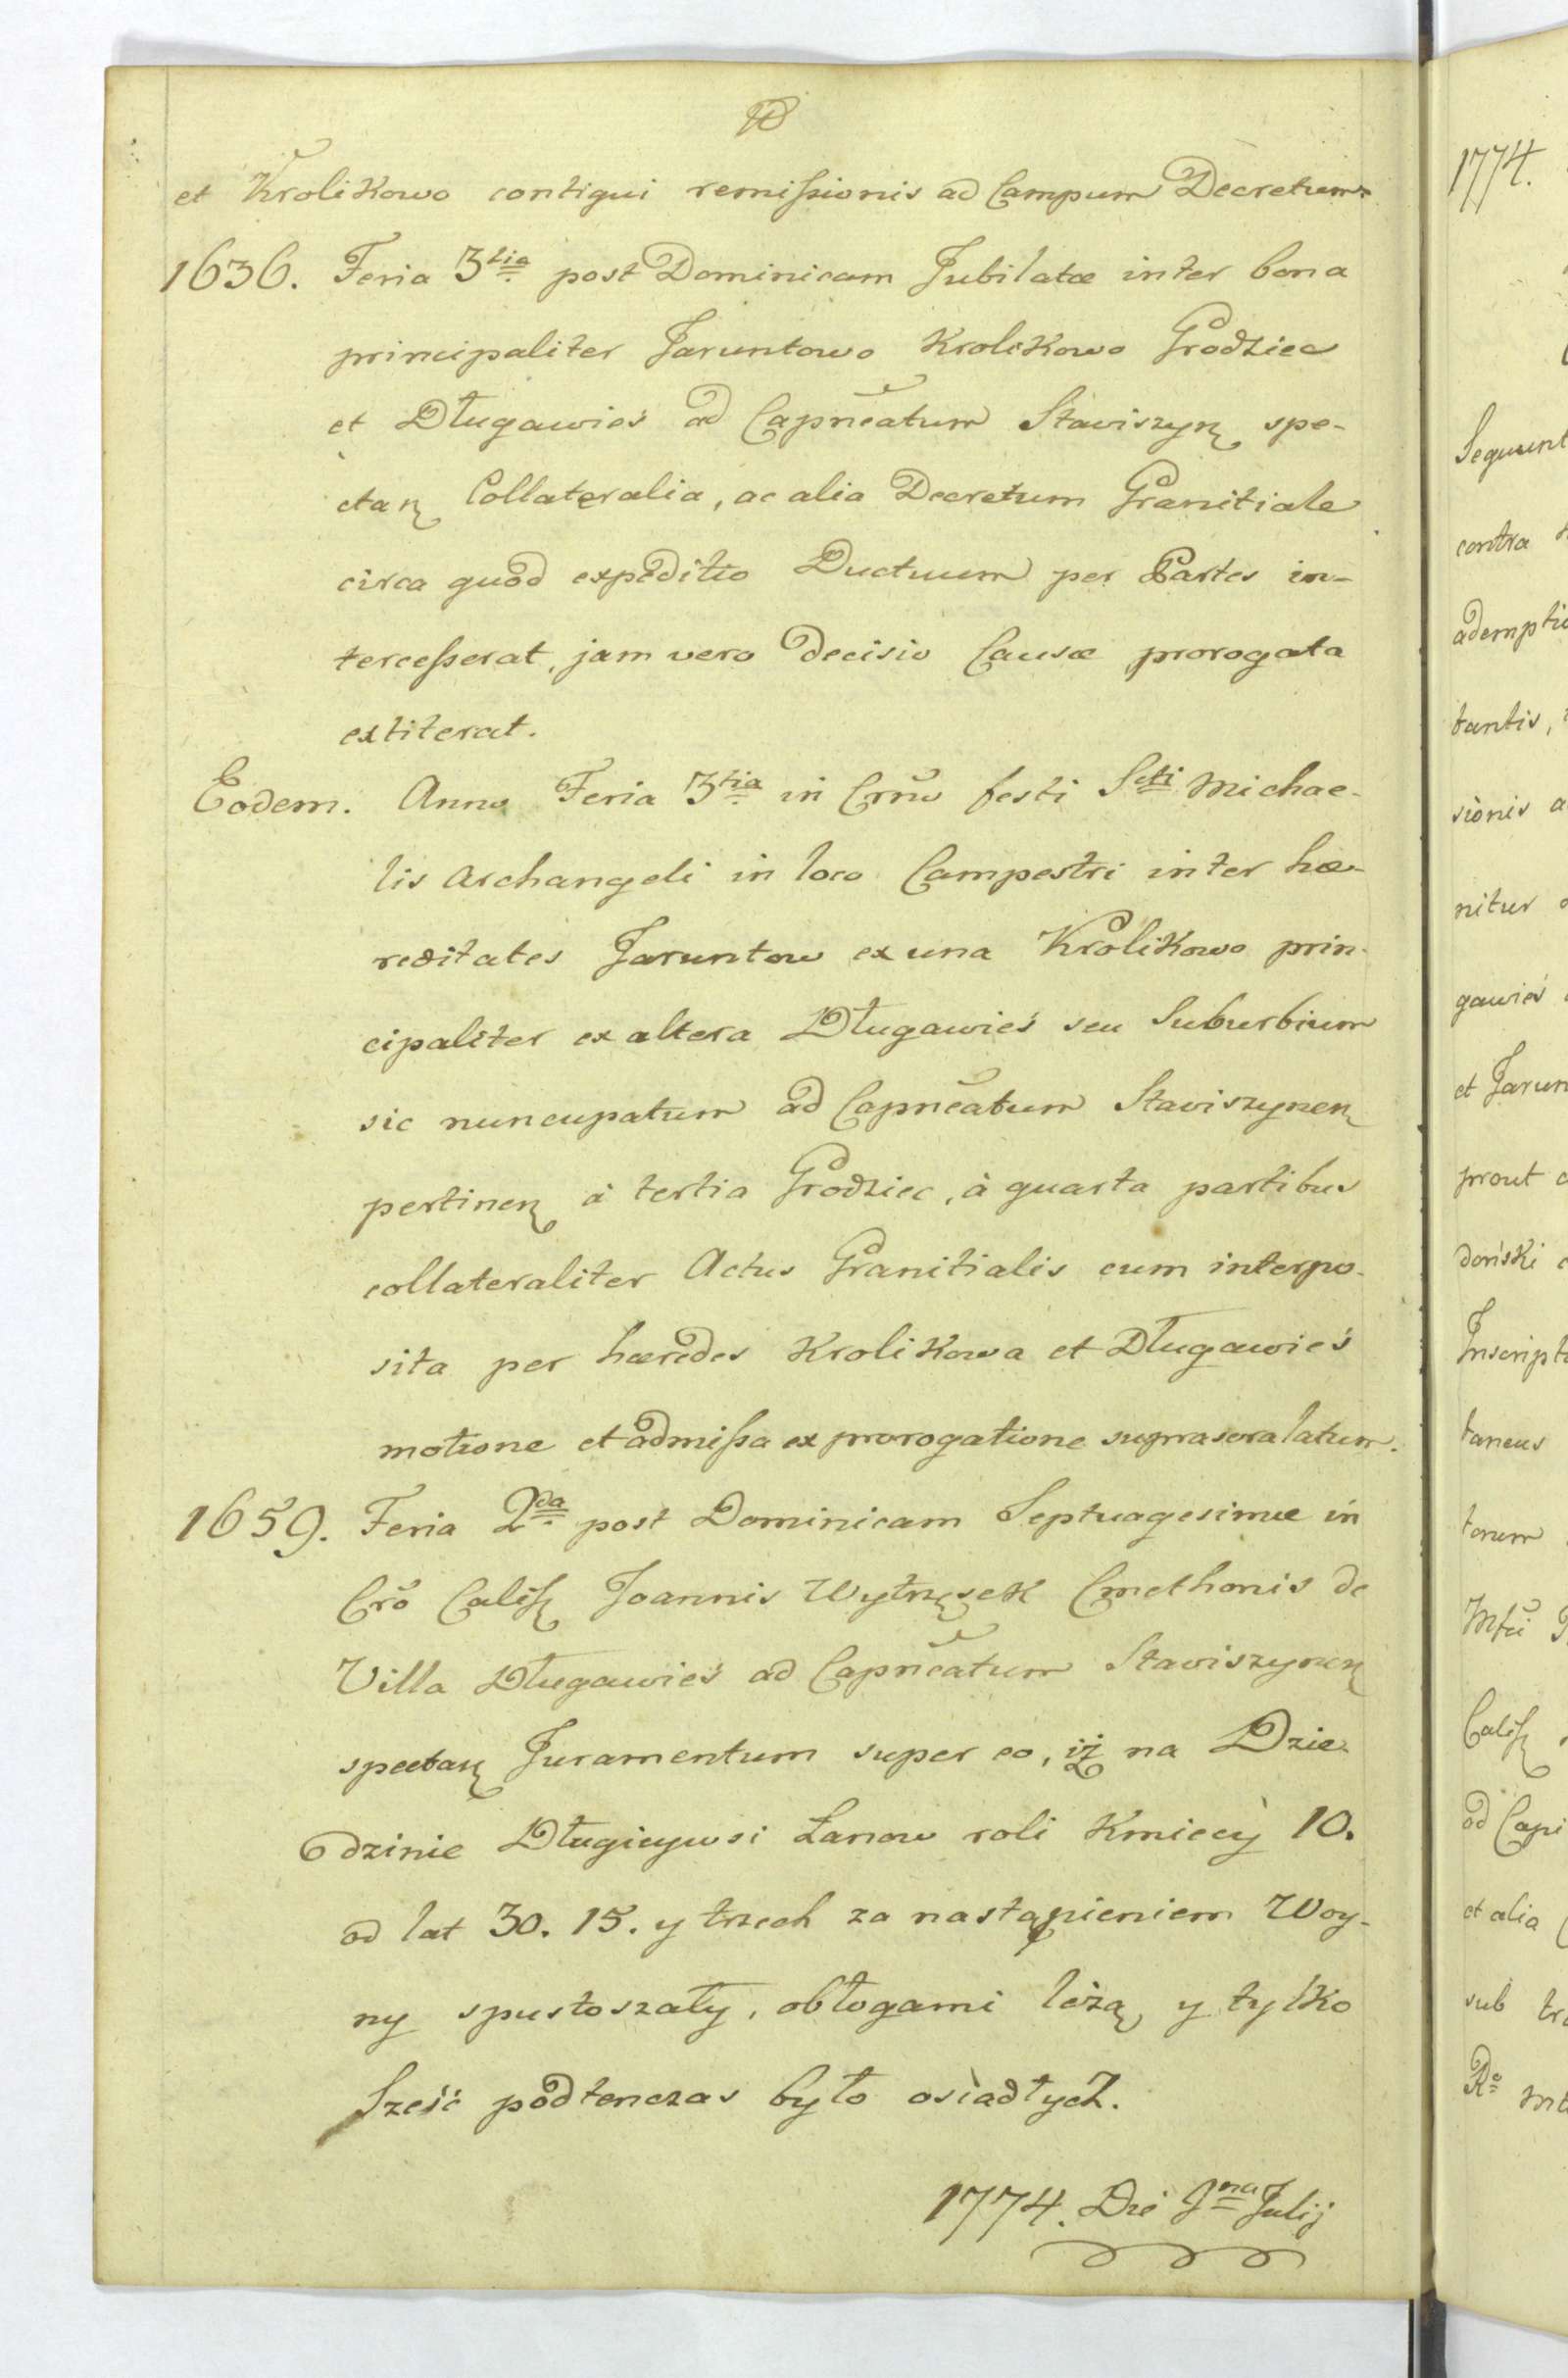 et Krolikowo contigui remissionis ad Campum Decretum.
1636. Feria 3tia post Dominicam Jubilatæ inter bona
principaliter Jaruntowo Krolikowo Grodziec
et Długawieś ad Capnẽatum Stawiszyn spe-
ctan Collateralia, ac alia Decretum Granitiale
circa quod expeditio Ductuum per Partes in-
tercesserat, jam vero decisio Causæ prorogata
extiterat.
Eodem. Anno Feria 3tia in Crño festi Scti Michae-
lis Archangeli in loco Campestri inter hæ-
reditates Jaruntow ex una Krolikowo prin-
cipaliter ex altera Długawieś seu Suburbium
sic nuncupatum ad Capnẽatum Stawiszynen
pertinen à tertia Grodziec, à quarta partibus
collateraliter Actus Granitialis cum interpo-
sita per hæredes Krolikowa et Długawieś
motione et admissa ex prorogatione
1659. Feria 2da post Dominicam Septuagesimæ in
Crõ Calis Joannis Cmethonis de
Villa Długawieś ad Capnẽatum Stawiszynen
spectan Juramentum super eo, iż na Dzie-
dzinie Długieywsi Łanow roli Kmiecy 10.
od lat 30. 15. y trzech za nastąpieniem Woy-
ny spustoszały, obłogami leżą y tylko
Sześć podtenczas było osiadłych.
1774. Die 1ma Julij
1774.
Sequunt
contra
ademptio
tantis,
sionis a
nitur
gawieś
et Jarun
prout
doński
Inscripti
taneus
torum
Mfci
Calis
ad Capi
et alia
sub